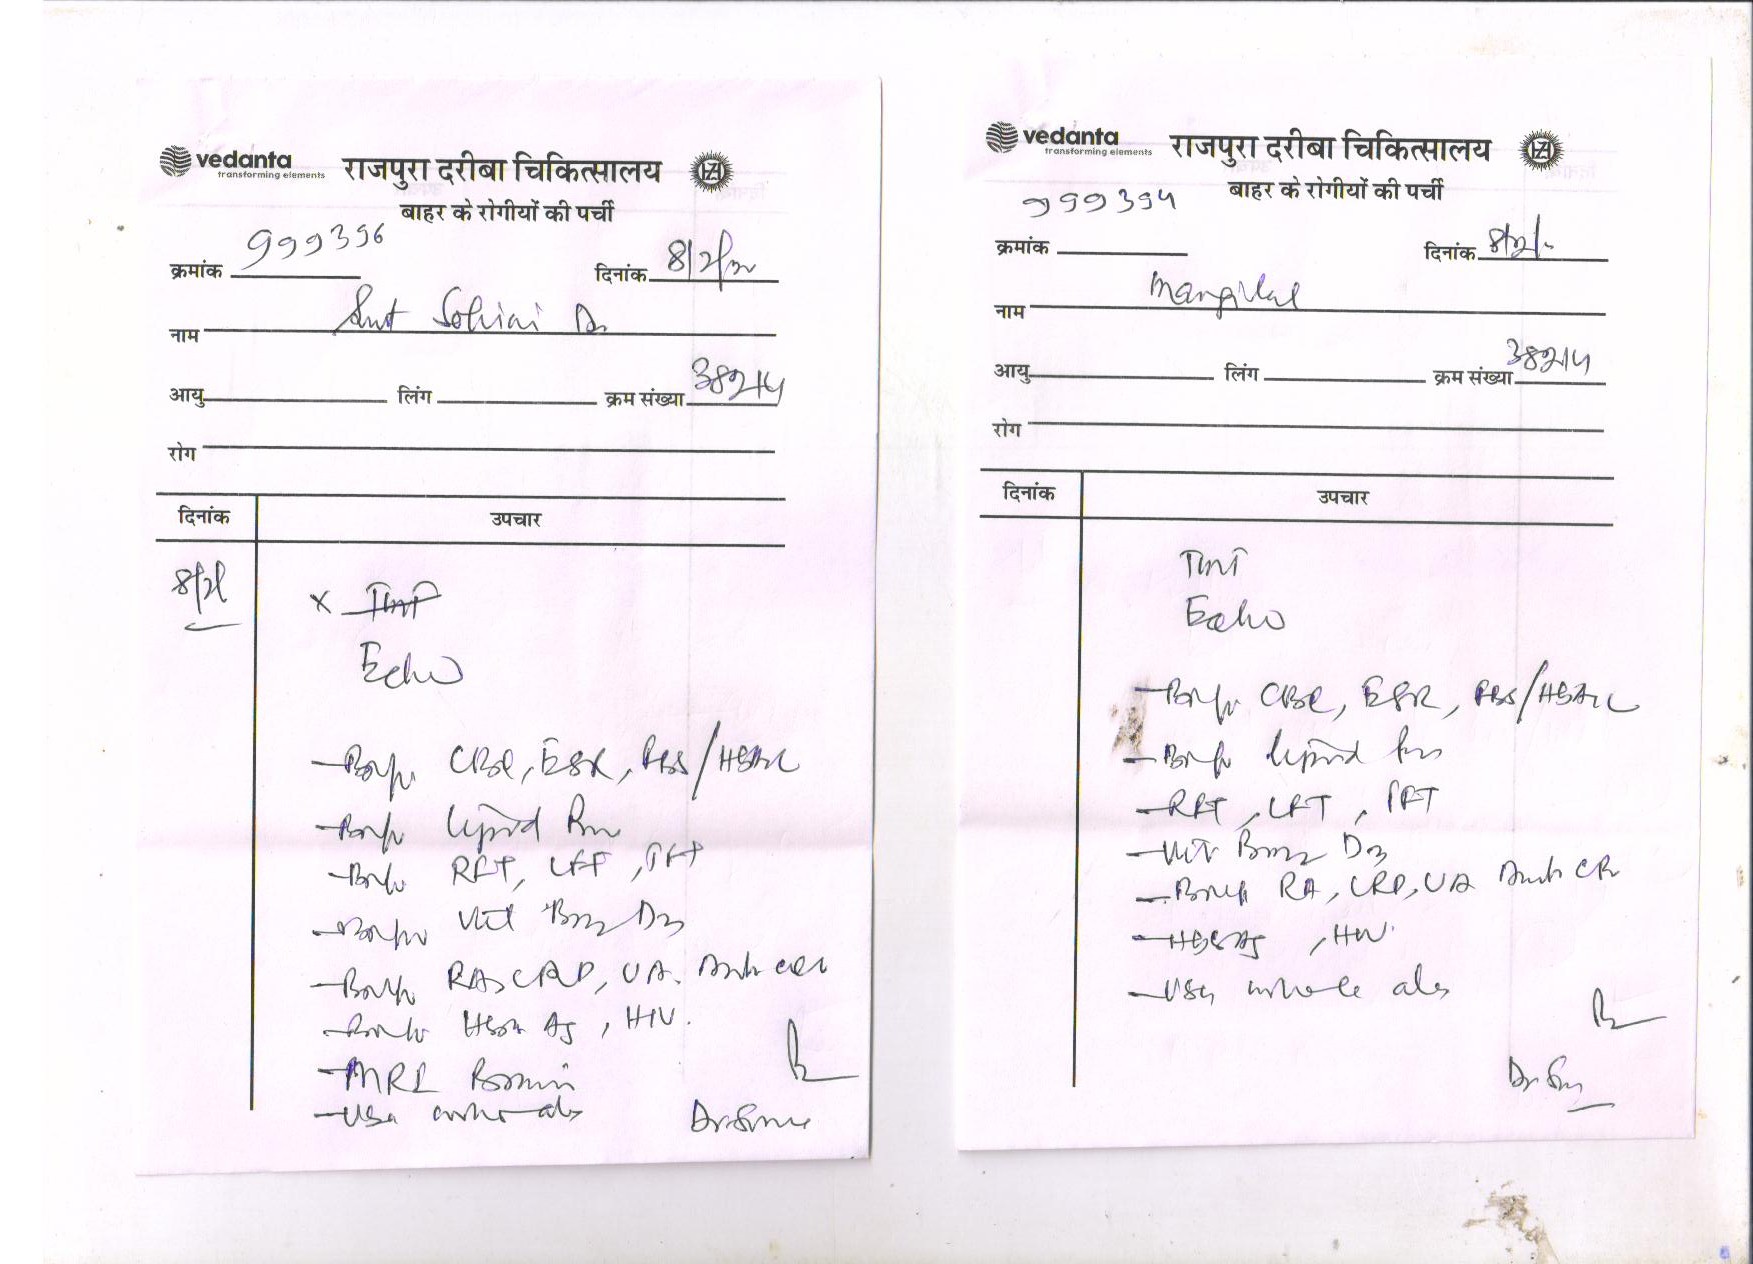 vedanta
transforming elements
राजपुरा दरीबा चिकित्सालय
बाहर के रोगीयों की पर्ची
999396
क्रमांक
दिनांक 8/2/
नाम Smt Sohini D
आयु लिंग क्रम संख्या 38214
रोग
दिनांक उपचार
8/2/
x TMT
Echo
CBC, ESR, RBS/HBA1C
lipid
RFT, LFT, TFT
Vit B12 D3
RA, CRP, UA. Anti CCP
HBsAg, HIV.
- MRI Brain
- USG whole abs
vedanta
transforming elements
राजपुरा दरीबा चिकित्सालय
बाहर के रोगीयों की पर्ची
999394
क्रमांक
दिनांक 8/2/-
नाम Mangilal
आयु लिंग क्रम संख्या 38214
रोग
दिनांक उपचार
TMT
Echo
CBC, ESR, RBS/HBA1C
lipid
- RFT, LFT, TFT
- Vit B12 D3
RA, CRP, UA Anti CC
- HBSAg, HIV.
- USG whole abs